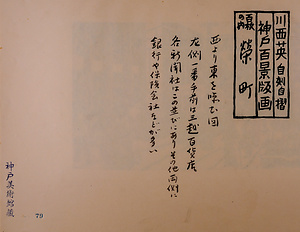 川西英自刻自摺
神戸百景版画
百景の内
榮町
西より東を望む図
左側一番手前は三越百貨店
各新聞社はこの並びにあり その他両側に
銀行や保険会社などが多い
神戸美術館蔵
79